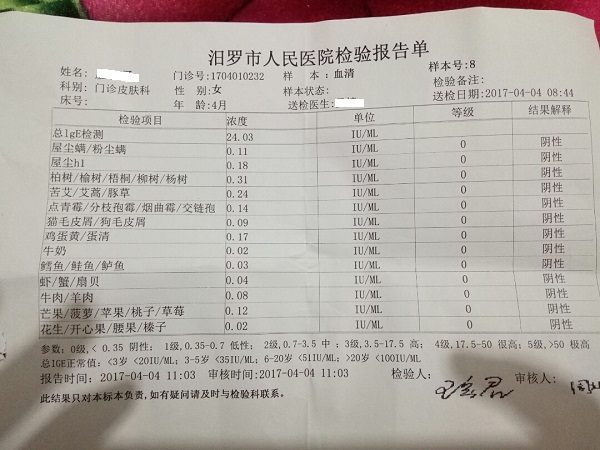 汨罗市人民医院检验报告单
姓名: 门诊号:1704010232 样 本:血清 样本号:8
科别: 门诊皮肤科 性 别:女 样本状态: 检验备注:
床号: 年 龄:4月 送检医生: 送检日期:2017-04-04 08:44
检验项目 浓度 单位 等级 结果解释
总lgE检测 24.03 IU/ML
屋尘螨/粉尘螨 0.11 IU/ML 0 阴性
屋尘h1 0.18 IU/ML 0 阴性
柏树/榆树/梧桐/柳树/杨树 0.31 IU/ML 0 阴性
苦艾/艾蒿/豚草 0.24 IU/ML 0 阴性
点青霉/分枝孢霉/烟曲霉/交链孢 0.14 IU/ML 0 阴性
猫毛皮屑/狗毛皮屑 0.09 IU/ML 0 阴性
鸡蛋黄/蛋清 0.17 IU/ML 0 阴性
牛奶 0.02 IU/ML 0 阴性
鳕鱼/鲑鱼/鲈鱼 0.03 IU/ML 0 阴性
虾/蟹/扇贝 0.04 IU/ML 0 阴性
牛肉/羊肉 0.08 IU/ML 0 阴性
芒果/菠萝/苹果/桃子/草莓 0.12 IU/ML 0 阴性
花生/开心果/腰果/榛子 0.02 IU/ML 0 阴性
参数: 0级,< 0.35 阴性; 1级,0.35-0.7 低性; 2级,0.7-3.5 中 ; 3级,3.5-17.5 高; 4级,17.5-50 很高; 5级,>50 极高
总IGE正常值: <3岁 <20IU/ML; 3-5岁 <35IU/ML; 6-20岁 <51IU/ML; >20岁 <100IU/ML
报告时间: 2017-04-04 11:03 审核时间:2017-04-04 11:03 检验人: 审核人:
此结果只对本标本负责,如有疑问请及时与检验科联系。